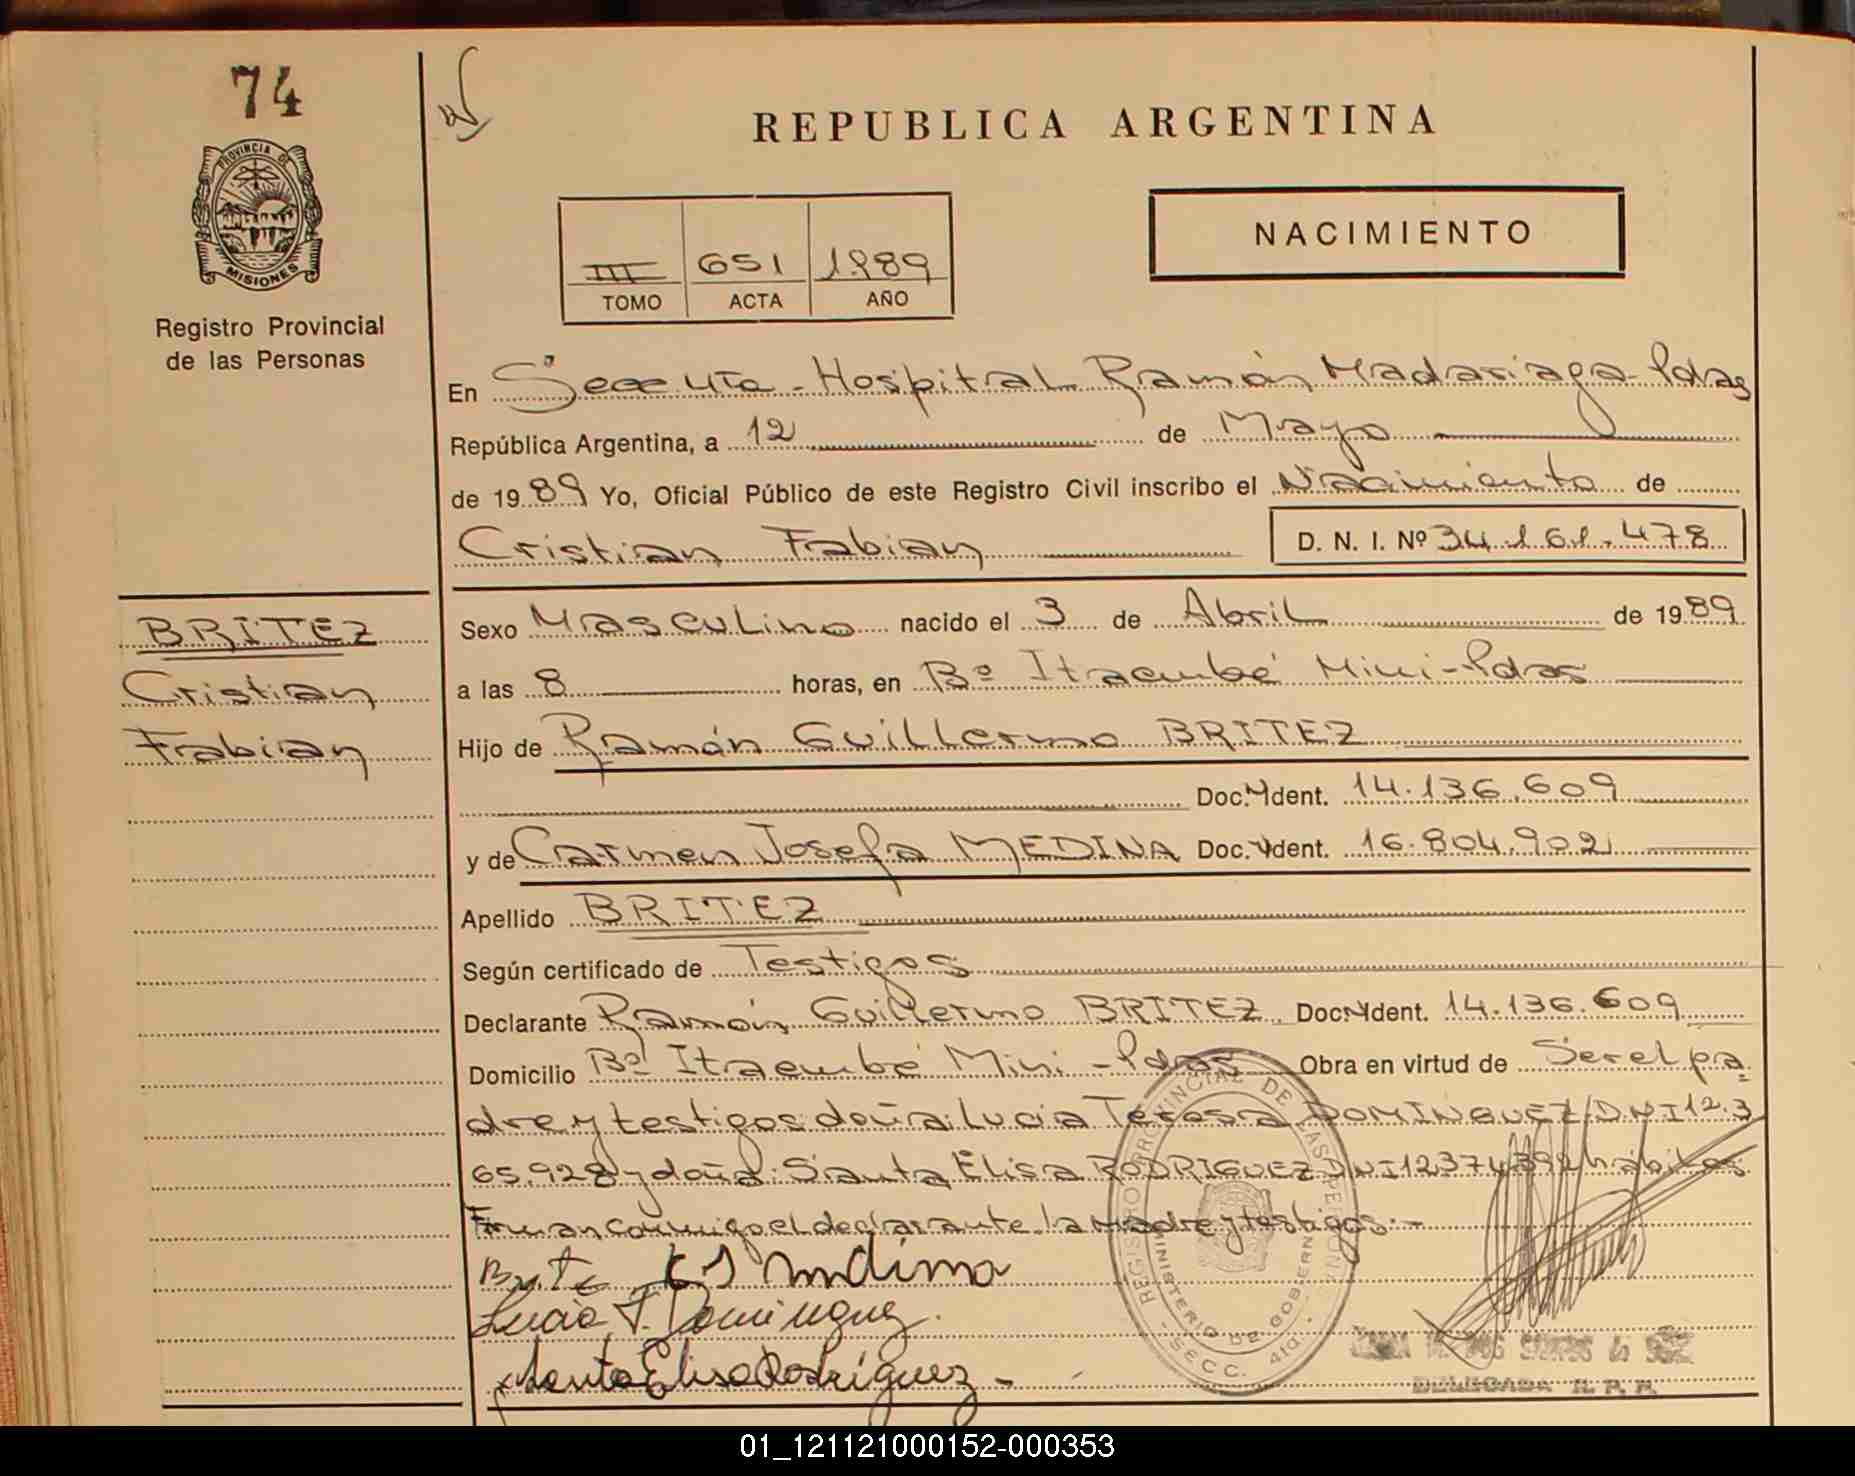 74
PROVINCIA DE
MISIONES
Registro Provincial
de las Personas
REPUBLICA ARGENTINA
NACIMIENTO
III 651 1989
TOMO ACTA AÑO
En Hospital Ramón Madariaga-Pdas
República Argentina, a 12 de Mayo
de 1989 Yo, Oficial Público de este Registro Civil inscribo el Nacimiento de
Cristian Fabian D. N. I. Nº 34.161.478
BRITEZ
Cristian
Fabian
Sexo Masculino nacido el 3 de Abril de 1989
a las 8 horas, en Bº Itaembé Mini-Pdas
Hijo de Ramón Guillermo BRITEZ
Doc. Ident. 14.136.609
y de Carmen Josefa MEDINA Doc. Ident. 16.804.902
Apellido BRITEZ
Según certificado de Testigos
Declarante Ramón Guillermo BRITEZ Doc. Ident. 14.136.609
Domicilio Bº Itaembé Mini-Pdas Obra en virtud de Ser el pa
dre y testigos doña: Lucia Teresa DOMINGUEZ D.N.I 12.3
65.928 y doña: Santa Elisa RODRIGUEZ DNI 12374392 hábiles
Firman conmigo el declarante, la madre y testigos.-
Lucia T. Dominguez.
Santa Elisa Rodríguez -
REGISTRO PROVINCIAL DE LAS PERSONAS
MINISTERIO DE GOBIERNO
- SECC. 4ta -
DELEGADA R. P. P.
01_121121000152-000353